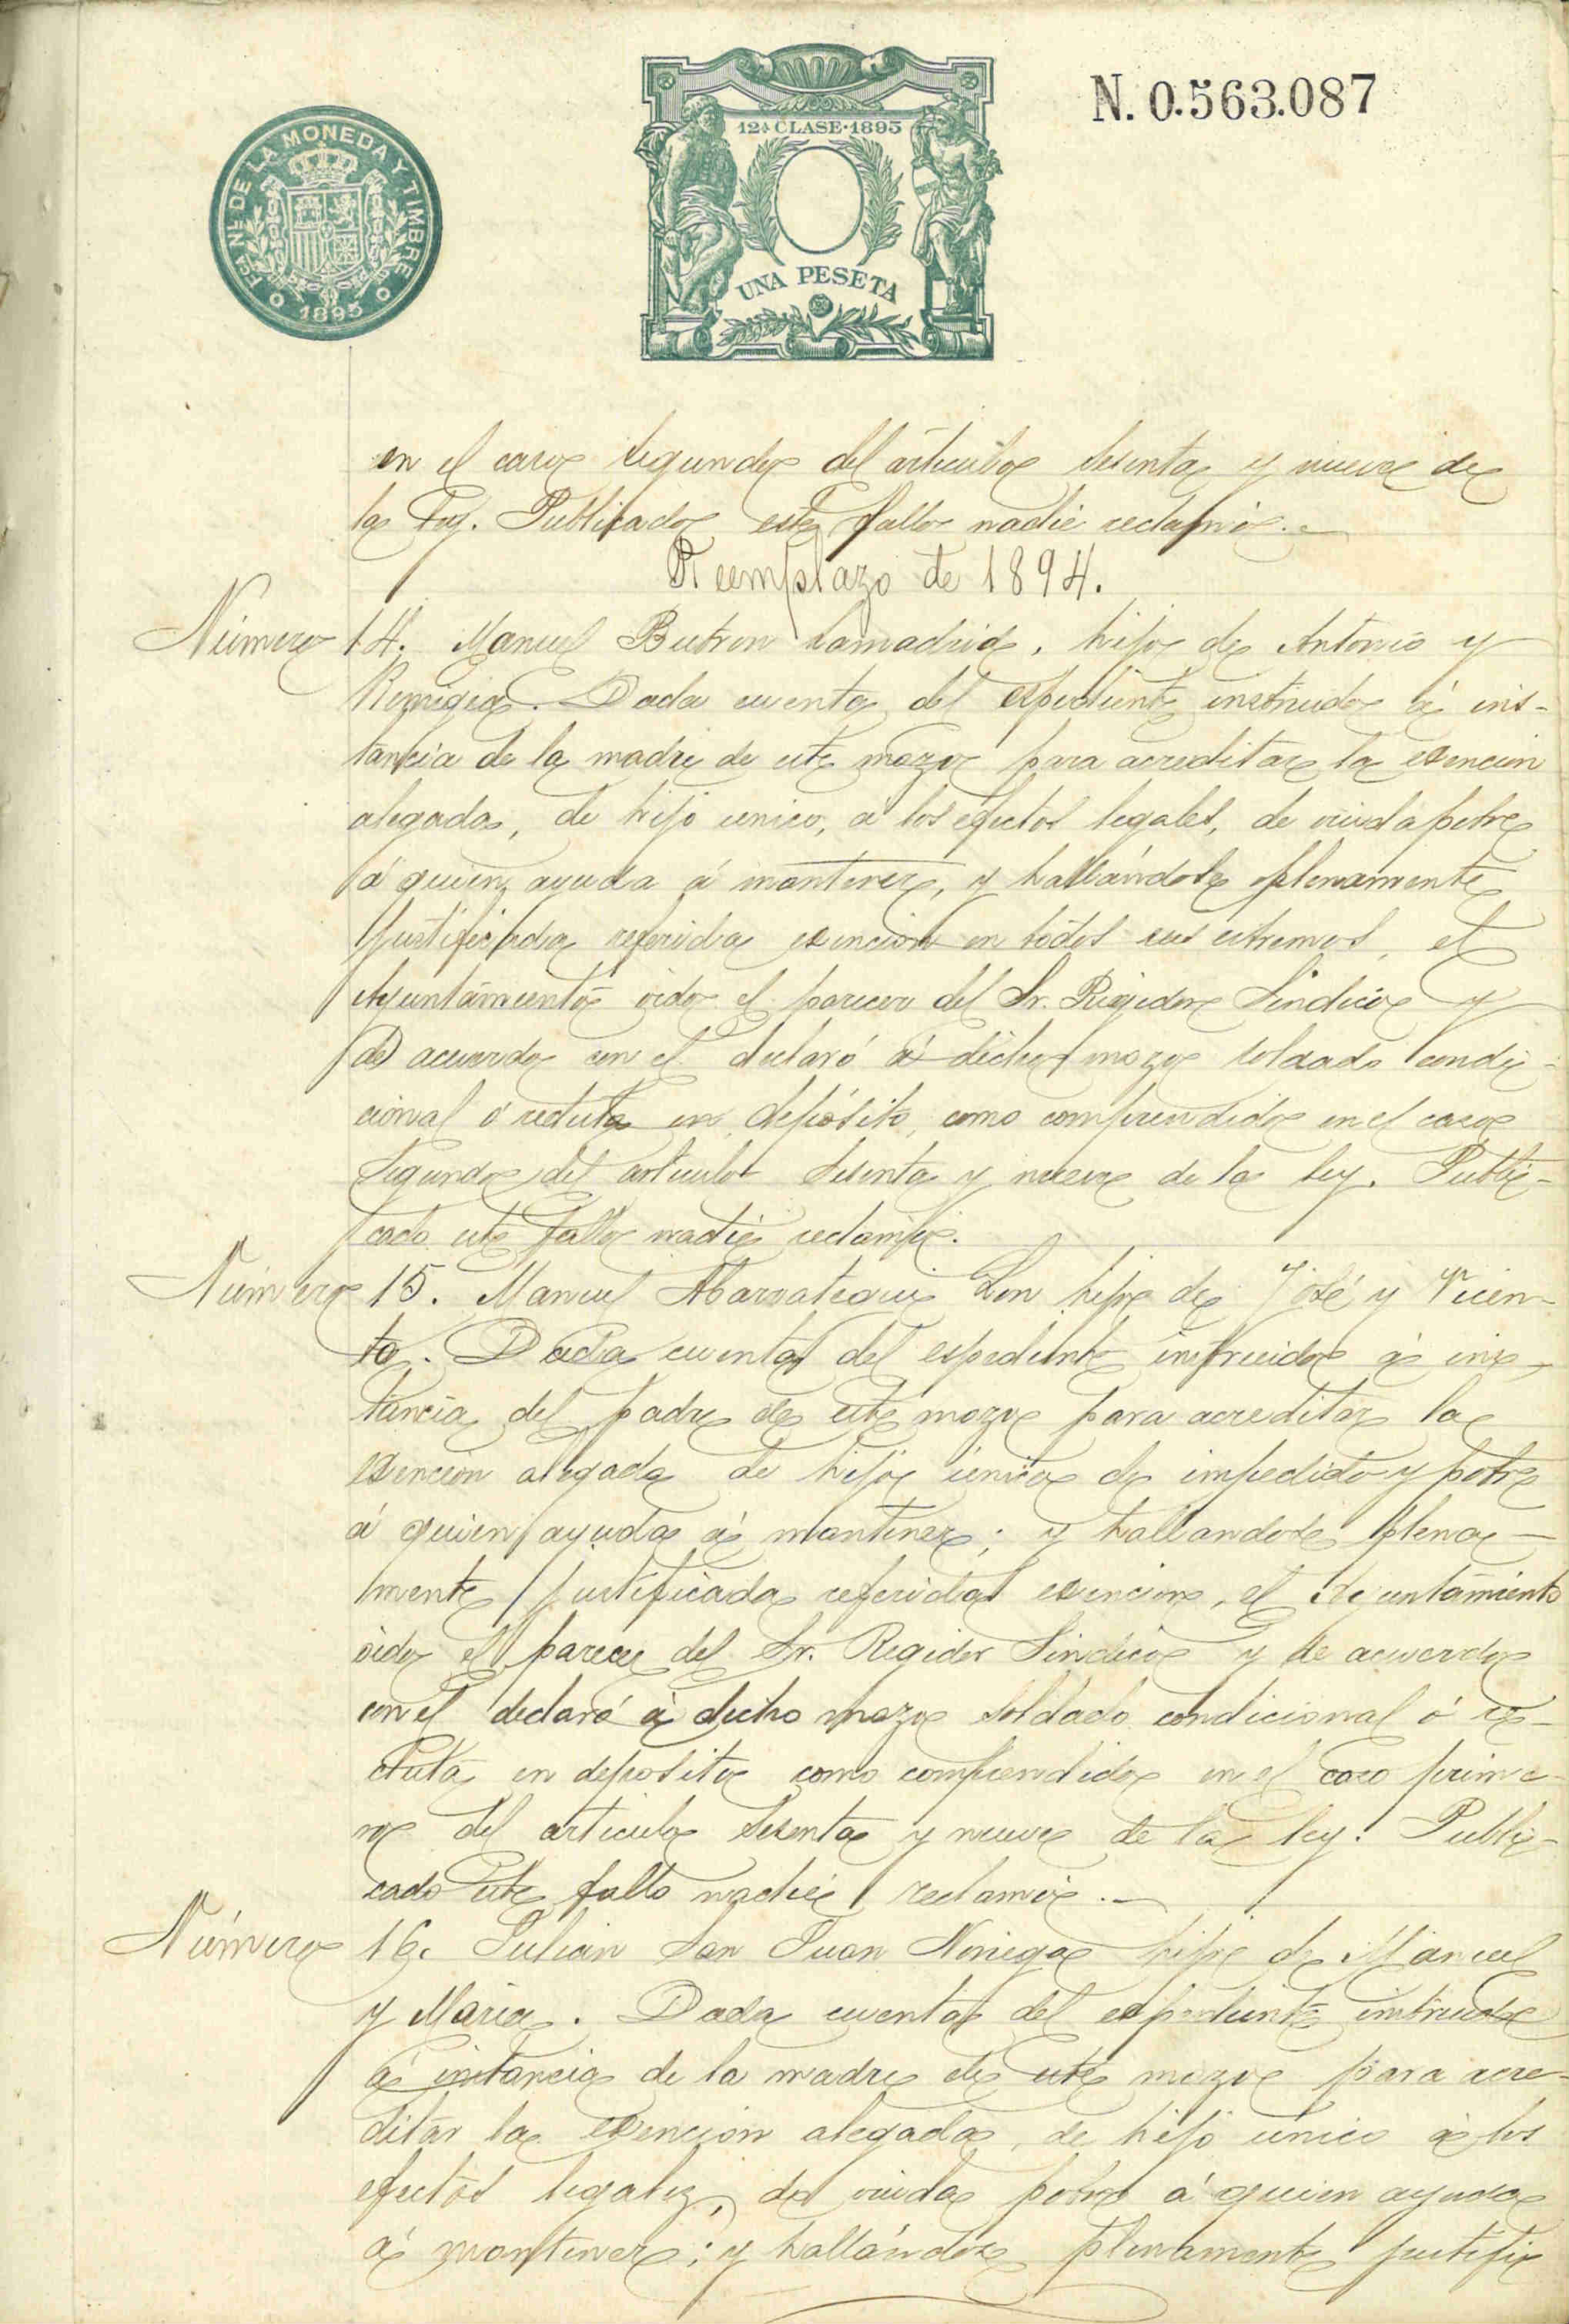 FCA NL DE LA MONEDA Y TIMBRE
1895
12ª CLASE·1895
UNA PESETA
N. 0.563.087
en el caso segundo del artículo sesenta y nueve de
la Ley. Publicado este fallo nadie reclamó.
Reemplazo de 1894.
Número 14. Manuel Butron Lamadrid, hijo de Antonio y
Remigia. Dada cuenta del espediente instruido á ins-
tancia de la madre de este mozo para acreditar la esencion
alegada, de hijo unico, a los efectos legales, de viuda pobre
á quien ayuda á mantener, y hallándose plenamente
justificada referida esencion en todos sus estremos, el
Ayuntamiento oido el parecer del Sr. Regidor Sindico y
de acuerdo con el declaró á dicho mozo soldado condi-
cional ó recluta en depósito, como comprendido en el caso
segundo del articulo sesenta y nueve de la ley. Publi-
cado este fallo nadie reclamó.
Número 15. Manuel Abarrategui Lon hijo de José y Vicen-
ta. Dada cuenta del espediente instruido á ins-
tancia del padre de este mozo para acreditar la
esencion alegada de hijo único de impedido y pobre
á quien ayuda á mantener; y hallandose plena-
mente justificada referida esencion, el Ayuntamiento
oido el parecer del Sr. Regidor Sindico y de acuerdo
con el declaró á dicho mozo soldado condicional ó re-
cluta en deposito como comprendido en el caso prime-
ro del articulo sesenta y nueve de la ley. Publi-
cado este fallo nadie reclamó.
Número 16. Julian San Juan Noriega hijo de Manuel
y Maria. Dada cuenta del espediente instruido
á instancia de la madre de este mozo para acre-
ditar la esención alegada, de hijo único á los
efectos legales, de viuda pobre á quien ayuda
á mantener; y hallándose plenamente justifi